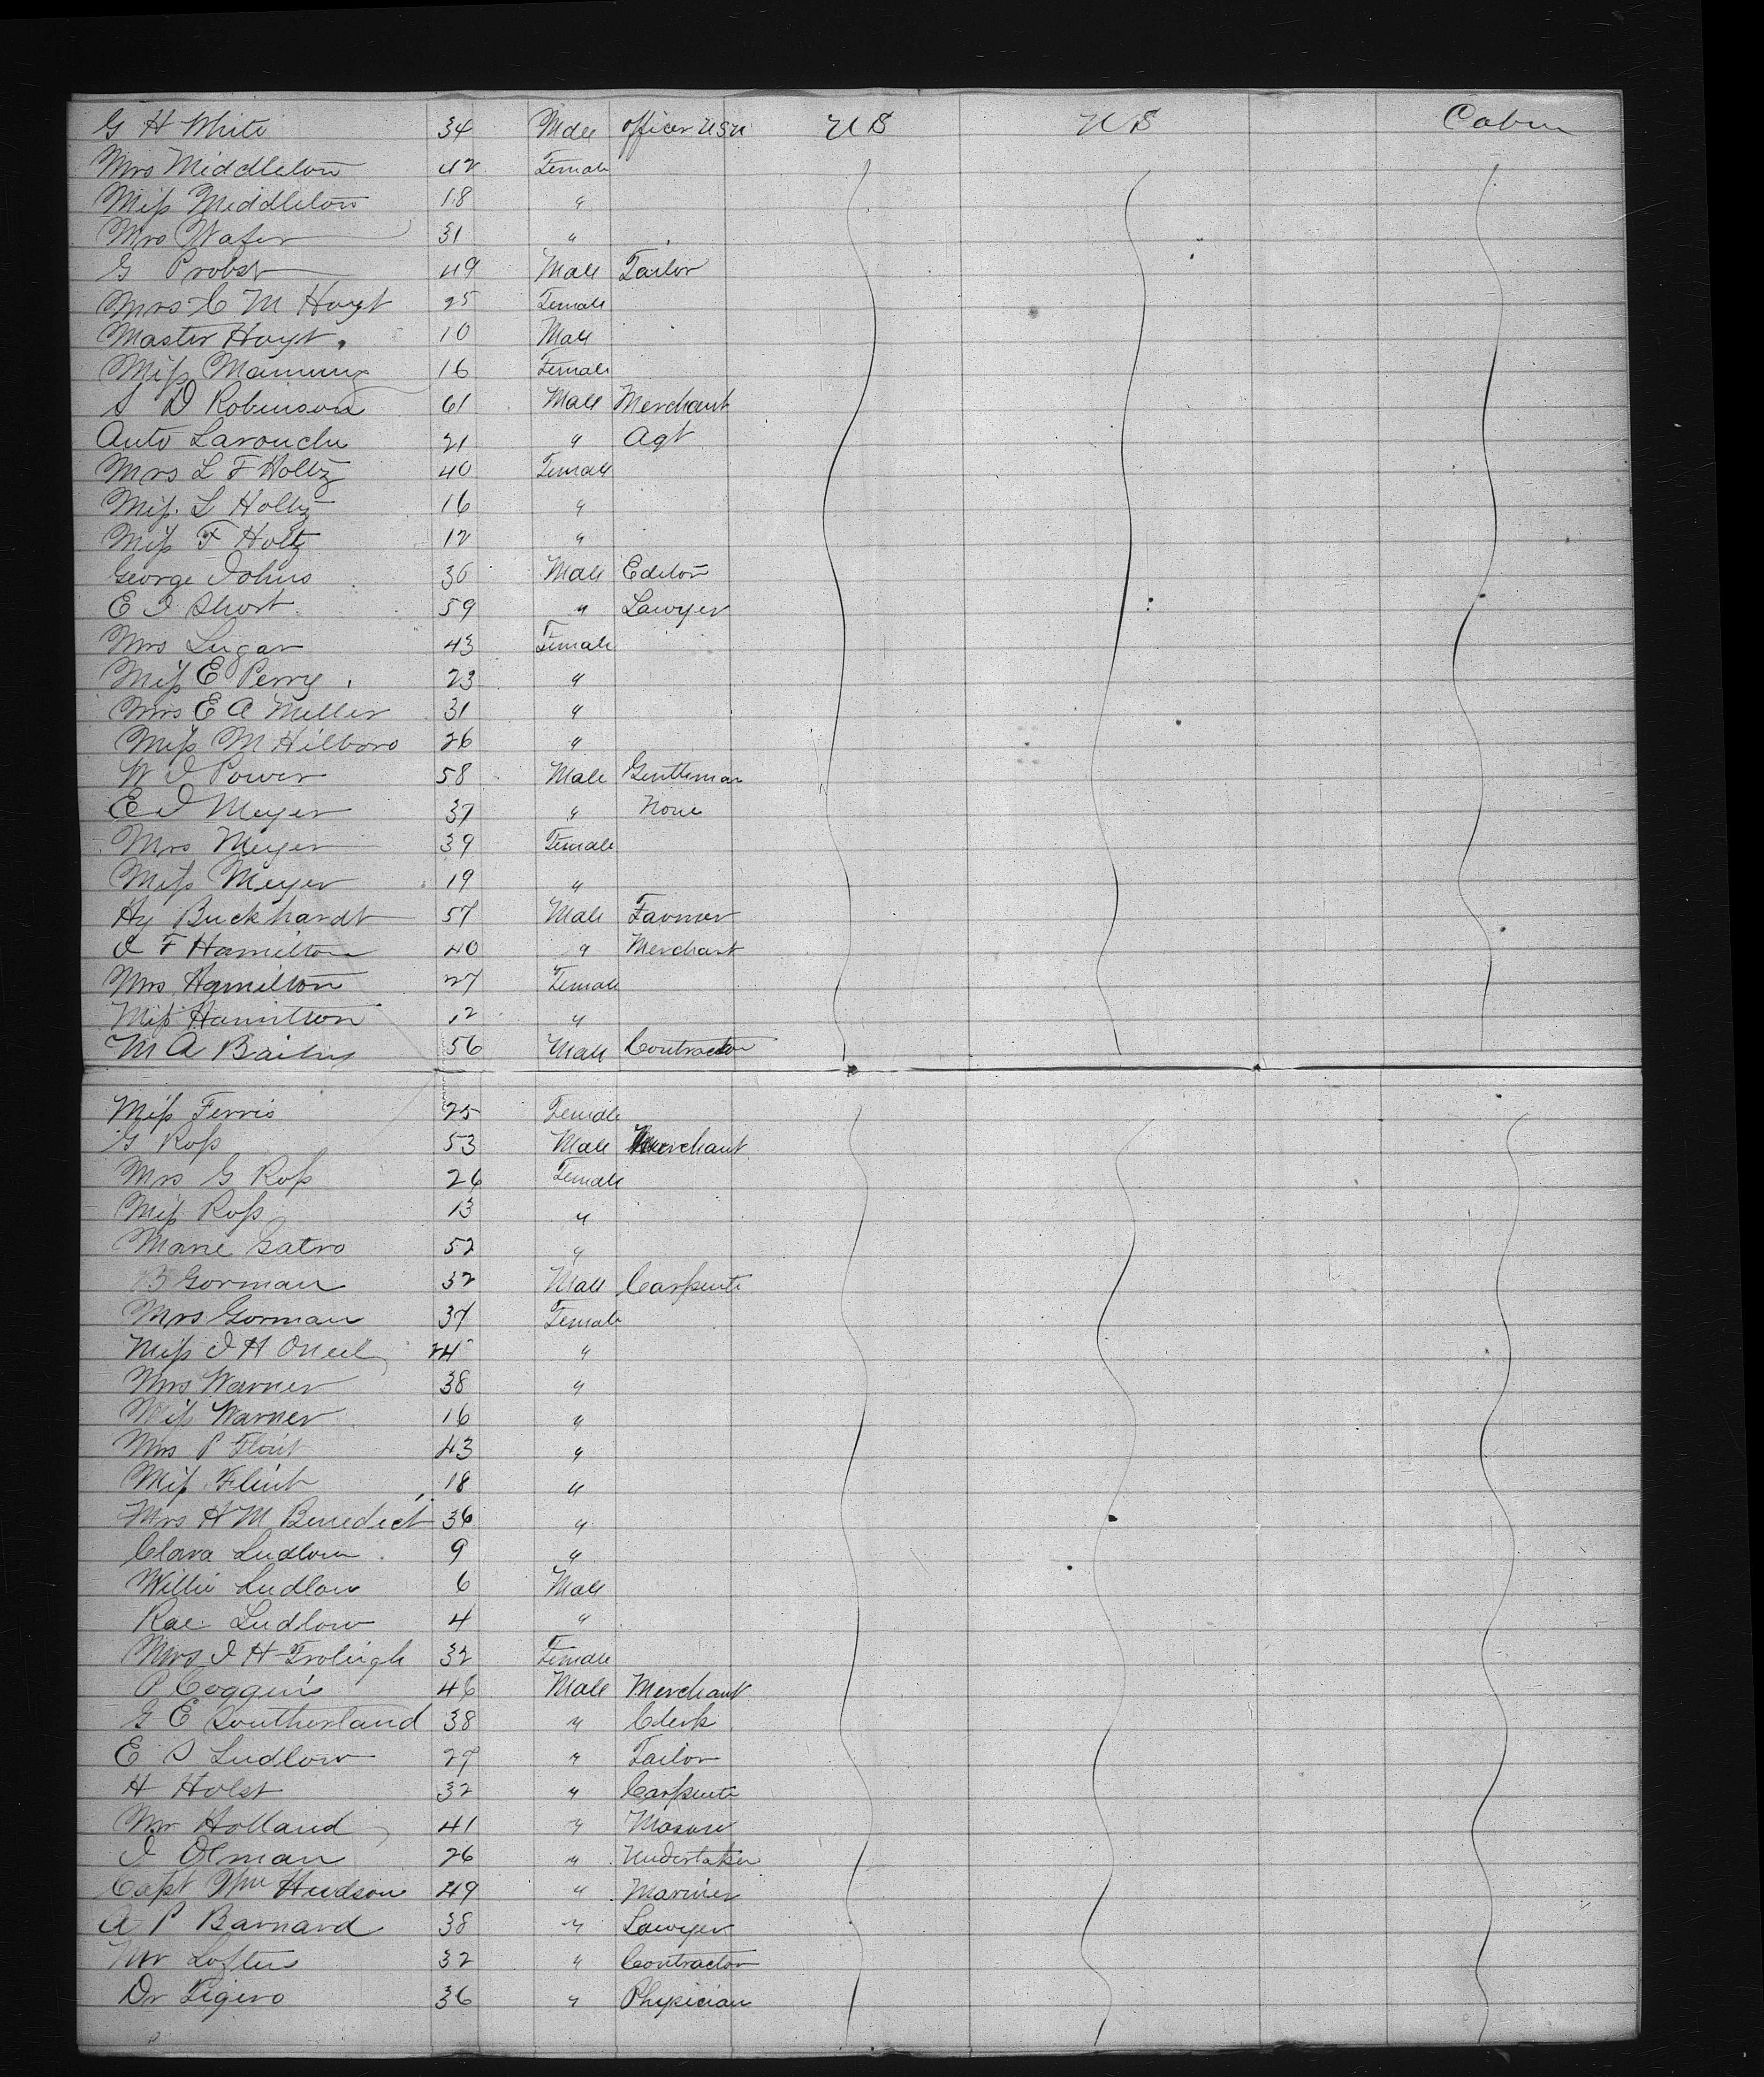 G H White 34 Male officer USN U S U S Cabin
Mrs Middleton 42 Female
Miss Middleton 18 "
Mrs Wafer 31 "
G Probst 49 Male Tailor
Mrs C M Hoyt 25 Female
Master Hoyt 10 Male
Miss Manning 16 Female
S D Robinson 61 Male Merchant
Auto Larouche 21 " Agt
Mrs L F Holtz 40 Female
Miss L Holtz 16 "
Miss F Holtz 12 "
George Johns 36 Male Editor
E J Short 59 " Lawyer
Mrs Lugar 43 Female
Miss E Perry 23 "
Mrs E A Miller 31 "
Miss M Hilboro 26 "
W J Power 58 Male Gentleman
E J Meyer 37 " None
Mrs Meyer 39 Female
Miss Meyer 19 "
Hy Buckhardt 57 Male Farmer
J F Hamilton 40 " Merchant
Mrs Hamilton 27 Female
Miss Hamilton 12 "
M A Bailey 56 Male Contractor
Miss Ferris 25 Female
G Ross 53 Male Merchant
Mrs G Ross 26 Female
Miss Ross 13 "
Marie Gatro 52 "
B Gorman 32 Male Carpente
Mrs Gorman 37 Female
Miss J H Oneil 24 "
Mrs Warner 38 "
Miss Warner 16 "
Mrs P Flint 43 "
Miss Flint 18 "
Mrs H M Benedict 36 "
Clara Ludlow 9 "
Willie Ludlow 6 Male
Rae Ludlow 4 "
Mrs J H Froligh 32 Female
P Coggins 46 Male Merchant
G E Southerland 38 " Clerk
E S Ludlow 27 " Tailor
H Holst 32 " Carpente
Mr Holland 41 " Mason
J Olman 26 " Undertaker
Capt Wm Hudson 49 " Mariner
A P Barnard 38 " Lawyer
Mr Loftus 32 " Contractor
Dr Figiro 36 " Physician